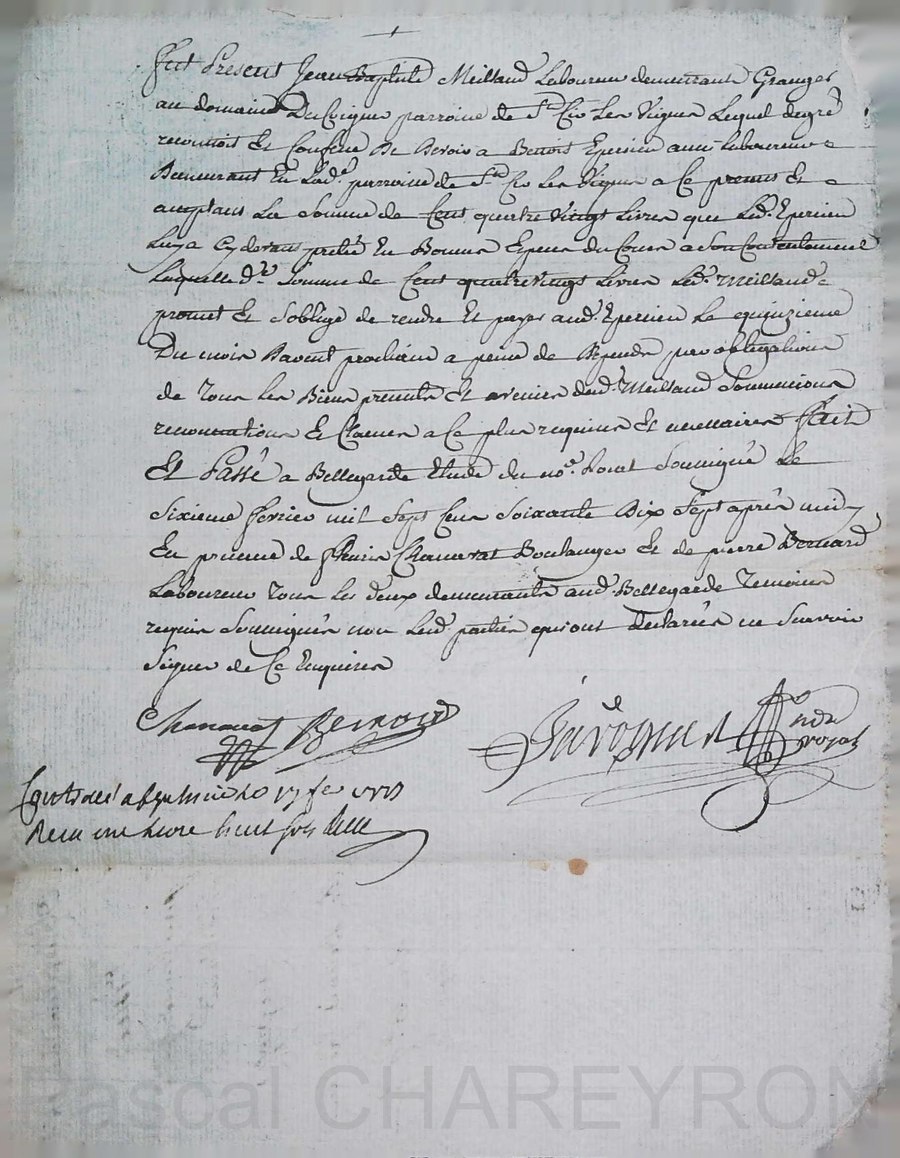 Fut Présent Jean Baptiste Meilland Laboureur demeurant Granger
au domaine Du Vigne parroisse de St. Cir Les Vignes Lequel degré
reconnoit Et Confesse De Devoir a Benoit Epercieu aussi Laboureur
Demeurant En Lade. parroisse de St. Cir Les Vignes a Ce present Et
acceptant La Somme de Cent quatre Vingts Livres que Led. Epercieu
Luy a Cy devant preté En Bonnes Espece du Cours a Son Contentement
Laquelle de. Somme de Cent quatre Vingts Livres Led. Meilland
promet Et S'oblige de rendre Et payer aud. Epercieu Le quinzieme
Du mois Davent prochain a peine de Dépends par obligations
de Tous Les Biens presents Et avenirs dud. Meilland Soumissions
renonciations Et Clauses a Ce plus requises Et necessaires Fait
Et Passé a Bellegarde Etude du nore. Ponat Soussigné Le
Sixieme fevrier mil Sept Cens Soixante Dix Sept après midy
En presence de fleurie Chanavat Boulanger Et de pierre Bernard
Laboureur Tous Les deux demeurants aud. Bellegarde Temoins
requis Soussignés non Lesd. parties qui ont Declarées ne Savoir
Signer de Ce Enquises
Chanavat Bernard
Contrôlé a le 17 fe 1777
Reçu une livre huit sols
Pascal CHAREYRON